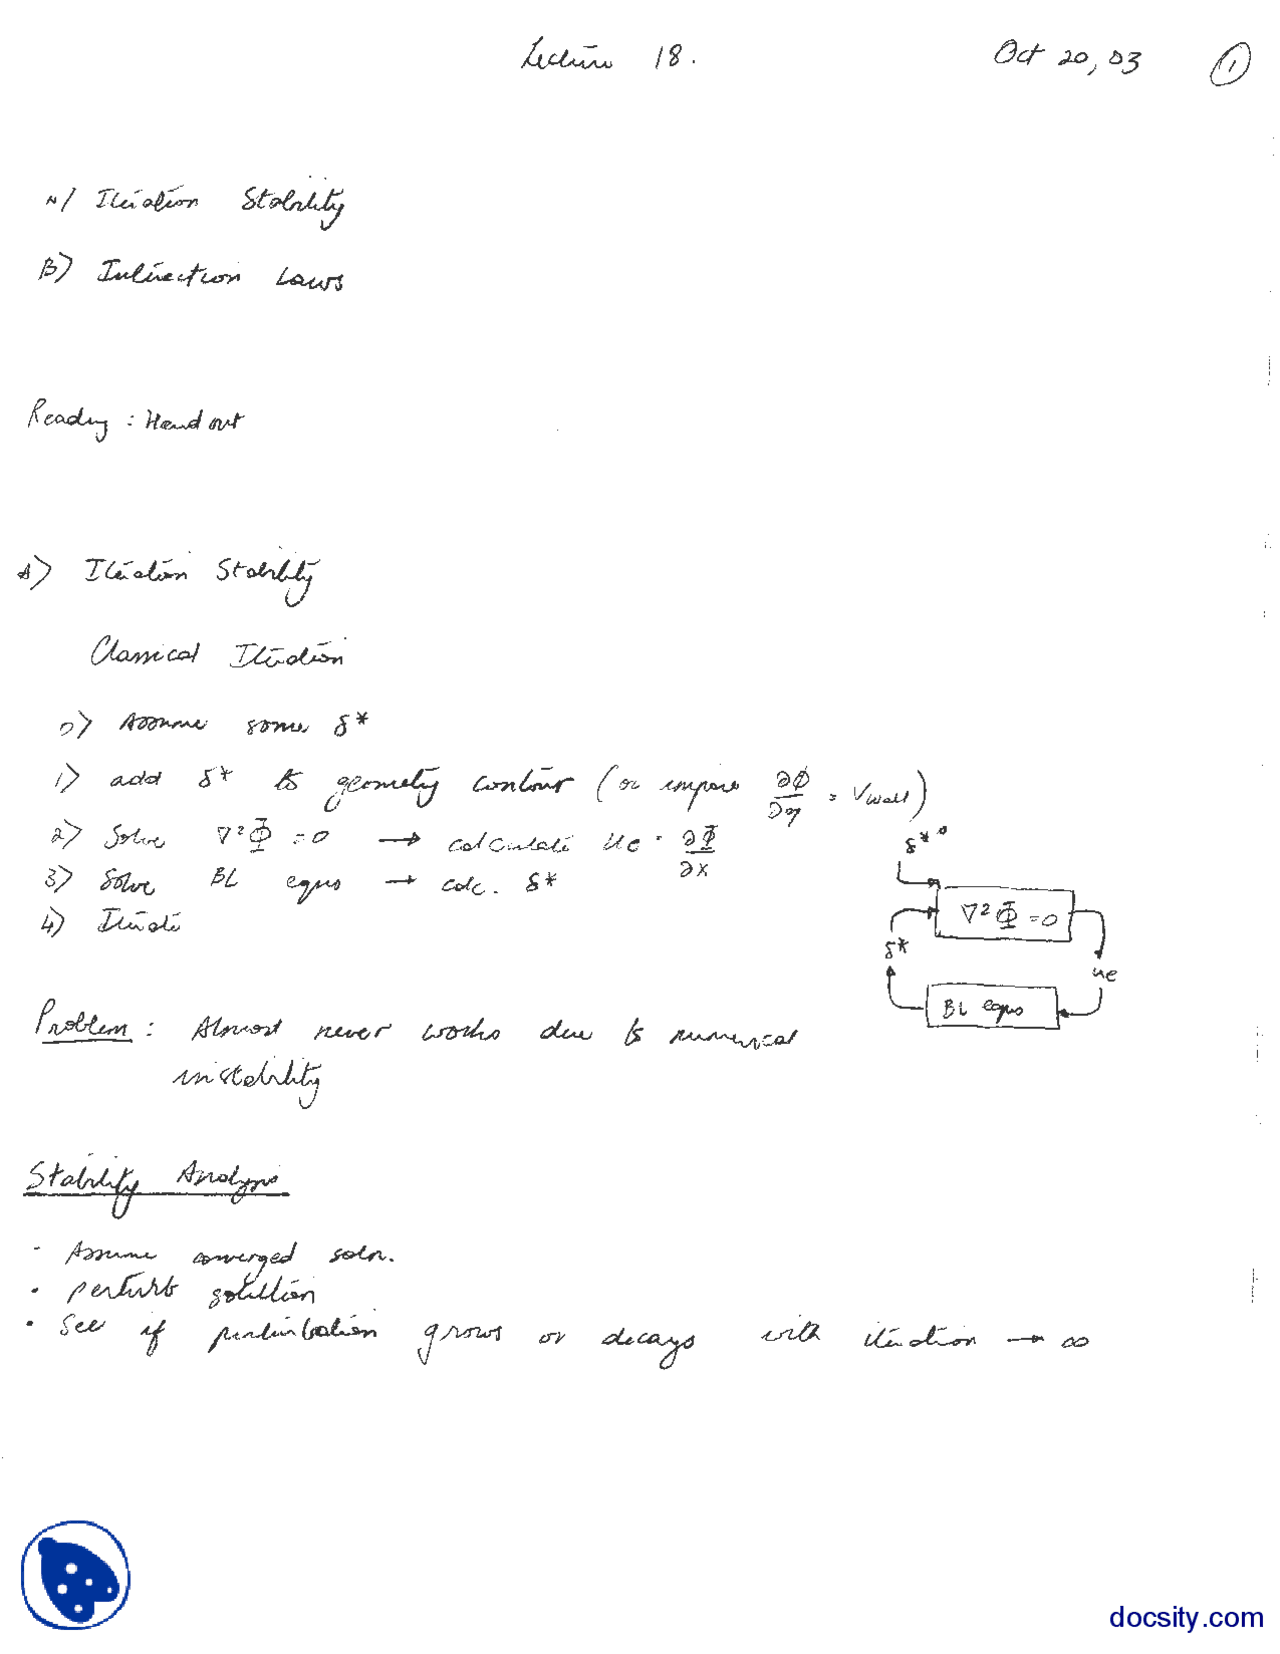 Lecture 18. Oct 20, 03 ①
A) Iteration Stability
B) Interaction Laws
Reading : Handout
A) Iteration Stability
Classical Iteration
0) Assume some δ*
1) add δ* to geometry contour (or impose ∂Φ/∂η = Vwall)
2) Solve ∇²Φ = 0 → calculate ue = ∂Φ/∂x
3) Solve BL eqns → calc. δ*
4) Iterate
δ*⁰
∇²Φ = 0
δ*
ue
BL eqns
Problem : Almost never works due to numerical
instability
Stability Analysis
· Assume converged soln.
· perturb solution
· See if perturbation grows or decays with iteration → ∞
docsity.com